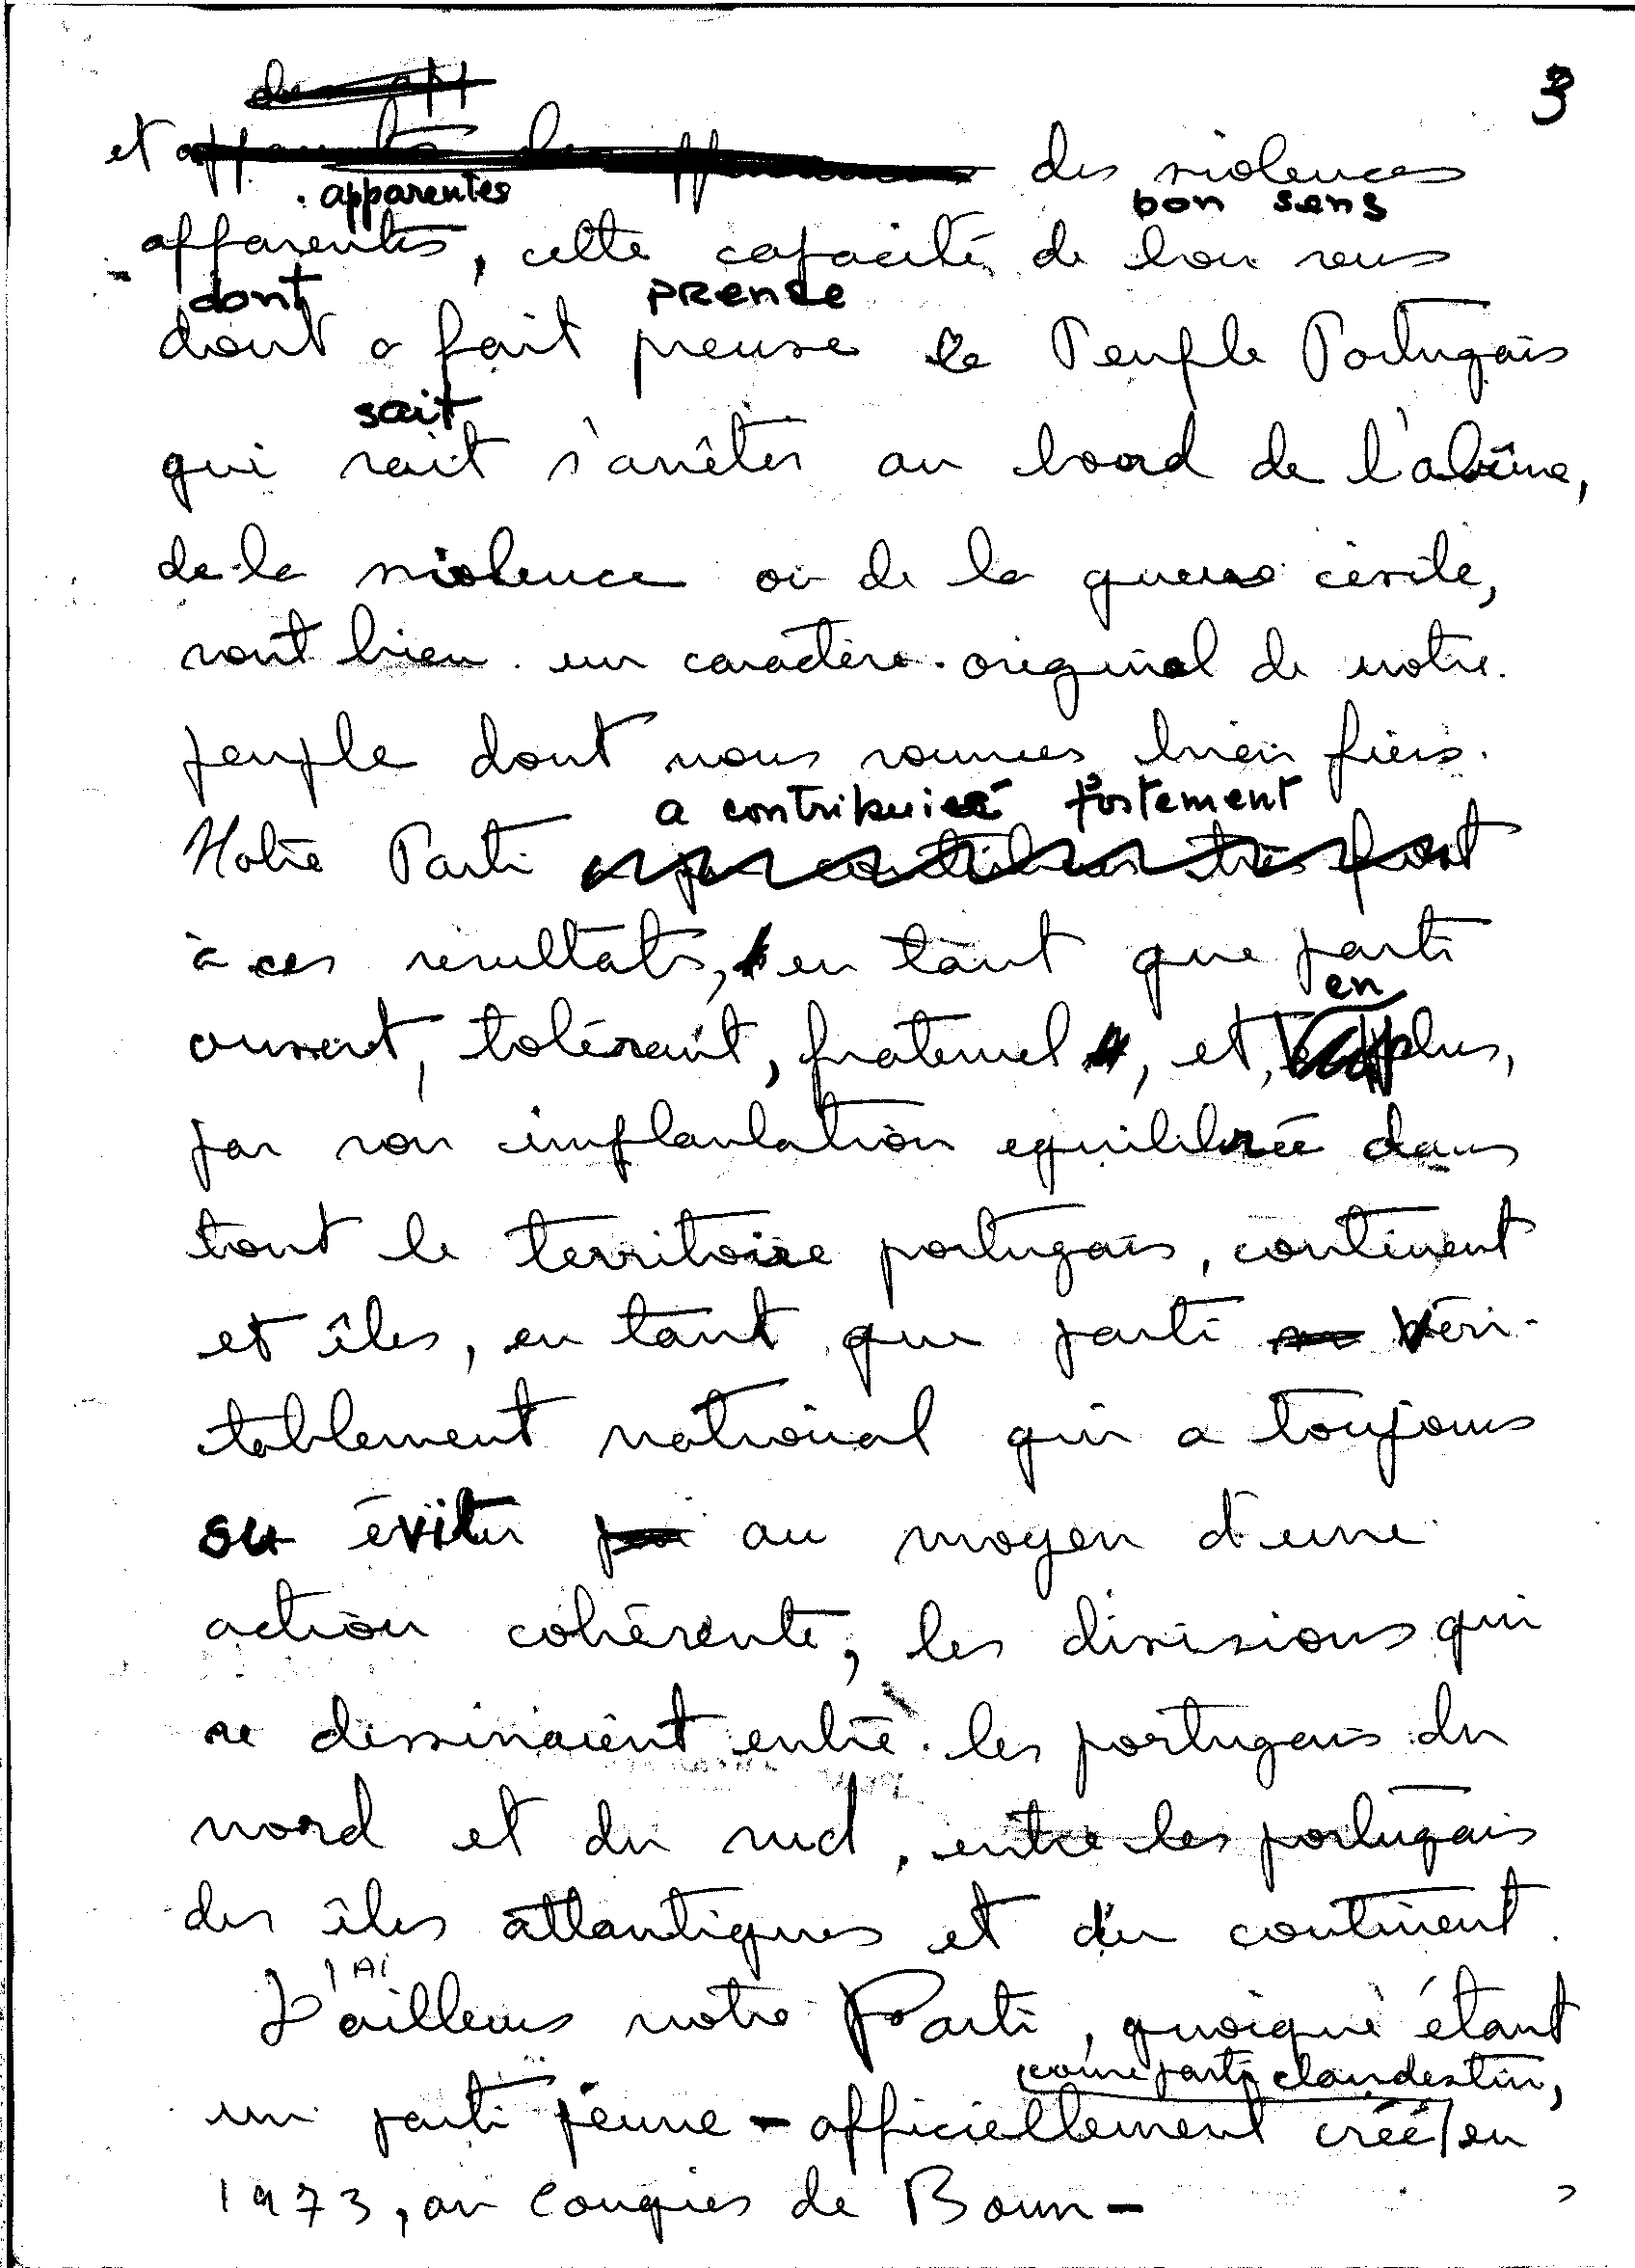 3
et des violences
apparentes
bon sens
apparentes, cette capacité de bon sens
dont
preuve
dont a fait preuve le Peuple Portugais
sait
qui sait s'arrêter au bord de l'abîme,
de la violence ou de la guerre civile,
sont bien un caractère original de notre
peuple dont nous sommes bien fiers.
a contribué fortement
Notre Parti
à ces résultats, en tant que parti
en
ouvert, tolérant, fraternel, et, plus,
par son implantation equilibrée dans
tout le territoire portugais, continent
et îles, en tant que parti véri-
tablement national qui a toujours
su éviter au moyen d'une
action cohérente, les divisions qui
se dessinaient entre les portugais du
nord et du sud, entre les portugais
des îles atlantiques et du continent.
D'ailleurs notre Parti, quoique étant
comme parti clandestin,
un parti jeune - officiellement créé en
1973, au Congrès de Bonn -